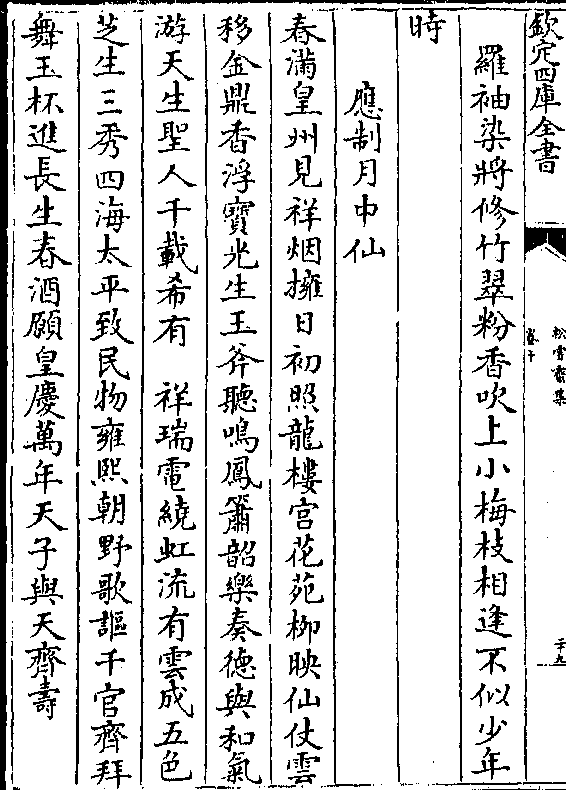 欽定四庫全書
松雪齋集
卷十
二十九
羅袖染將修竹翠粉香吹上小梅枝相逢不似少年
時
應制月中仙
春滿皇州見祥烟擁日初照龍樓宫花苑柳映仙仗雲
移金鼎香浮寶光生玉斧聽鳴鳳簫韶樂奏德與和氣
游天生聖人千載希有　祥瑞電繞虹流有雲成五色
芝生三秀四海太平致民物雍熙朝野歌謳千官齊拜
舞玉杯進長生春酒願皇慶萬年天子與天齊壽